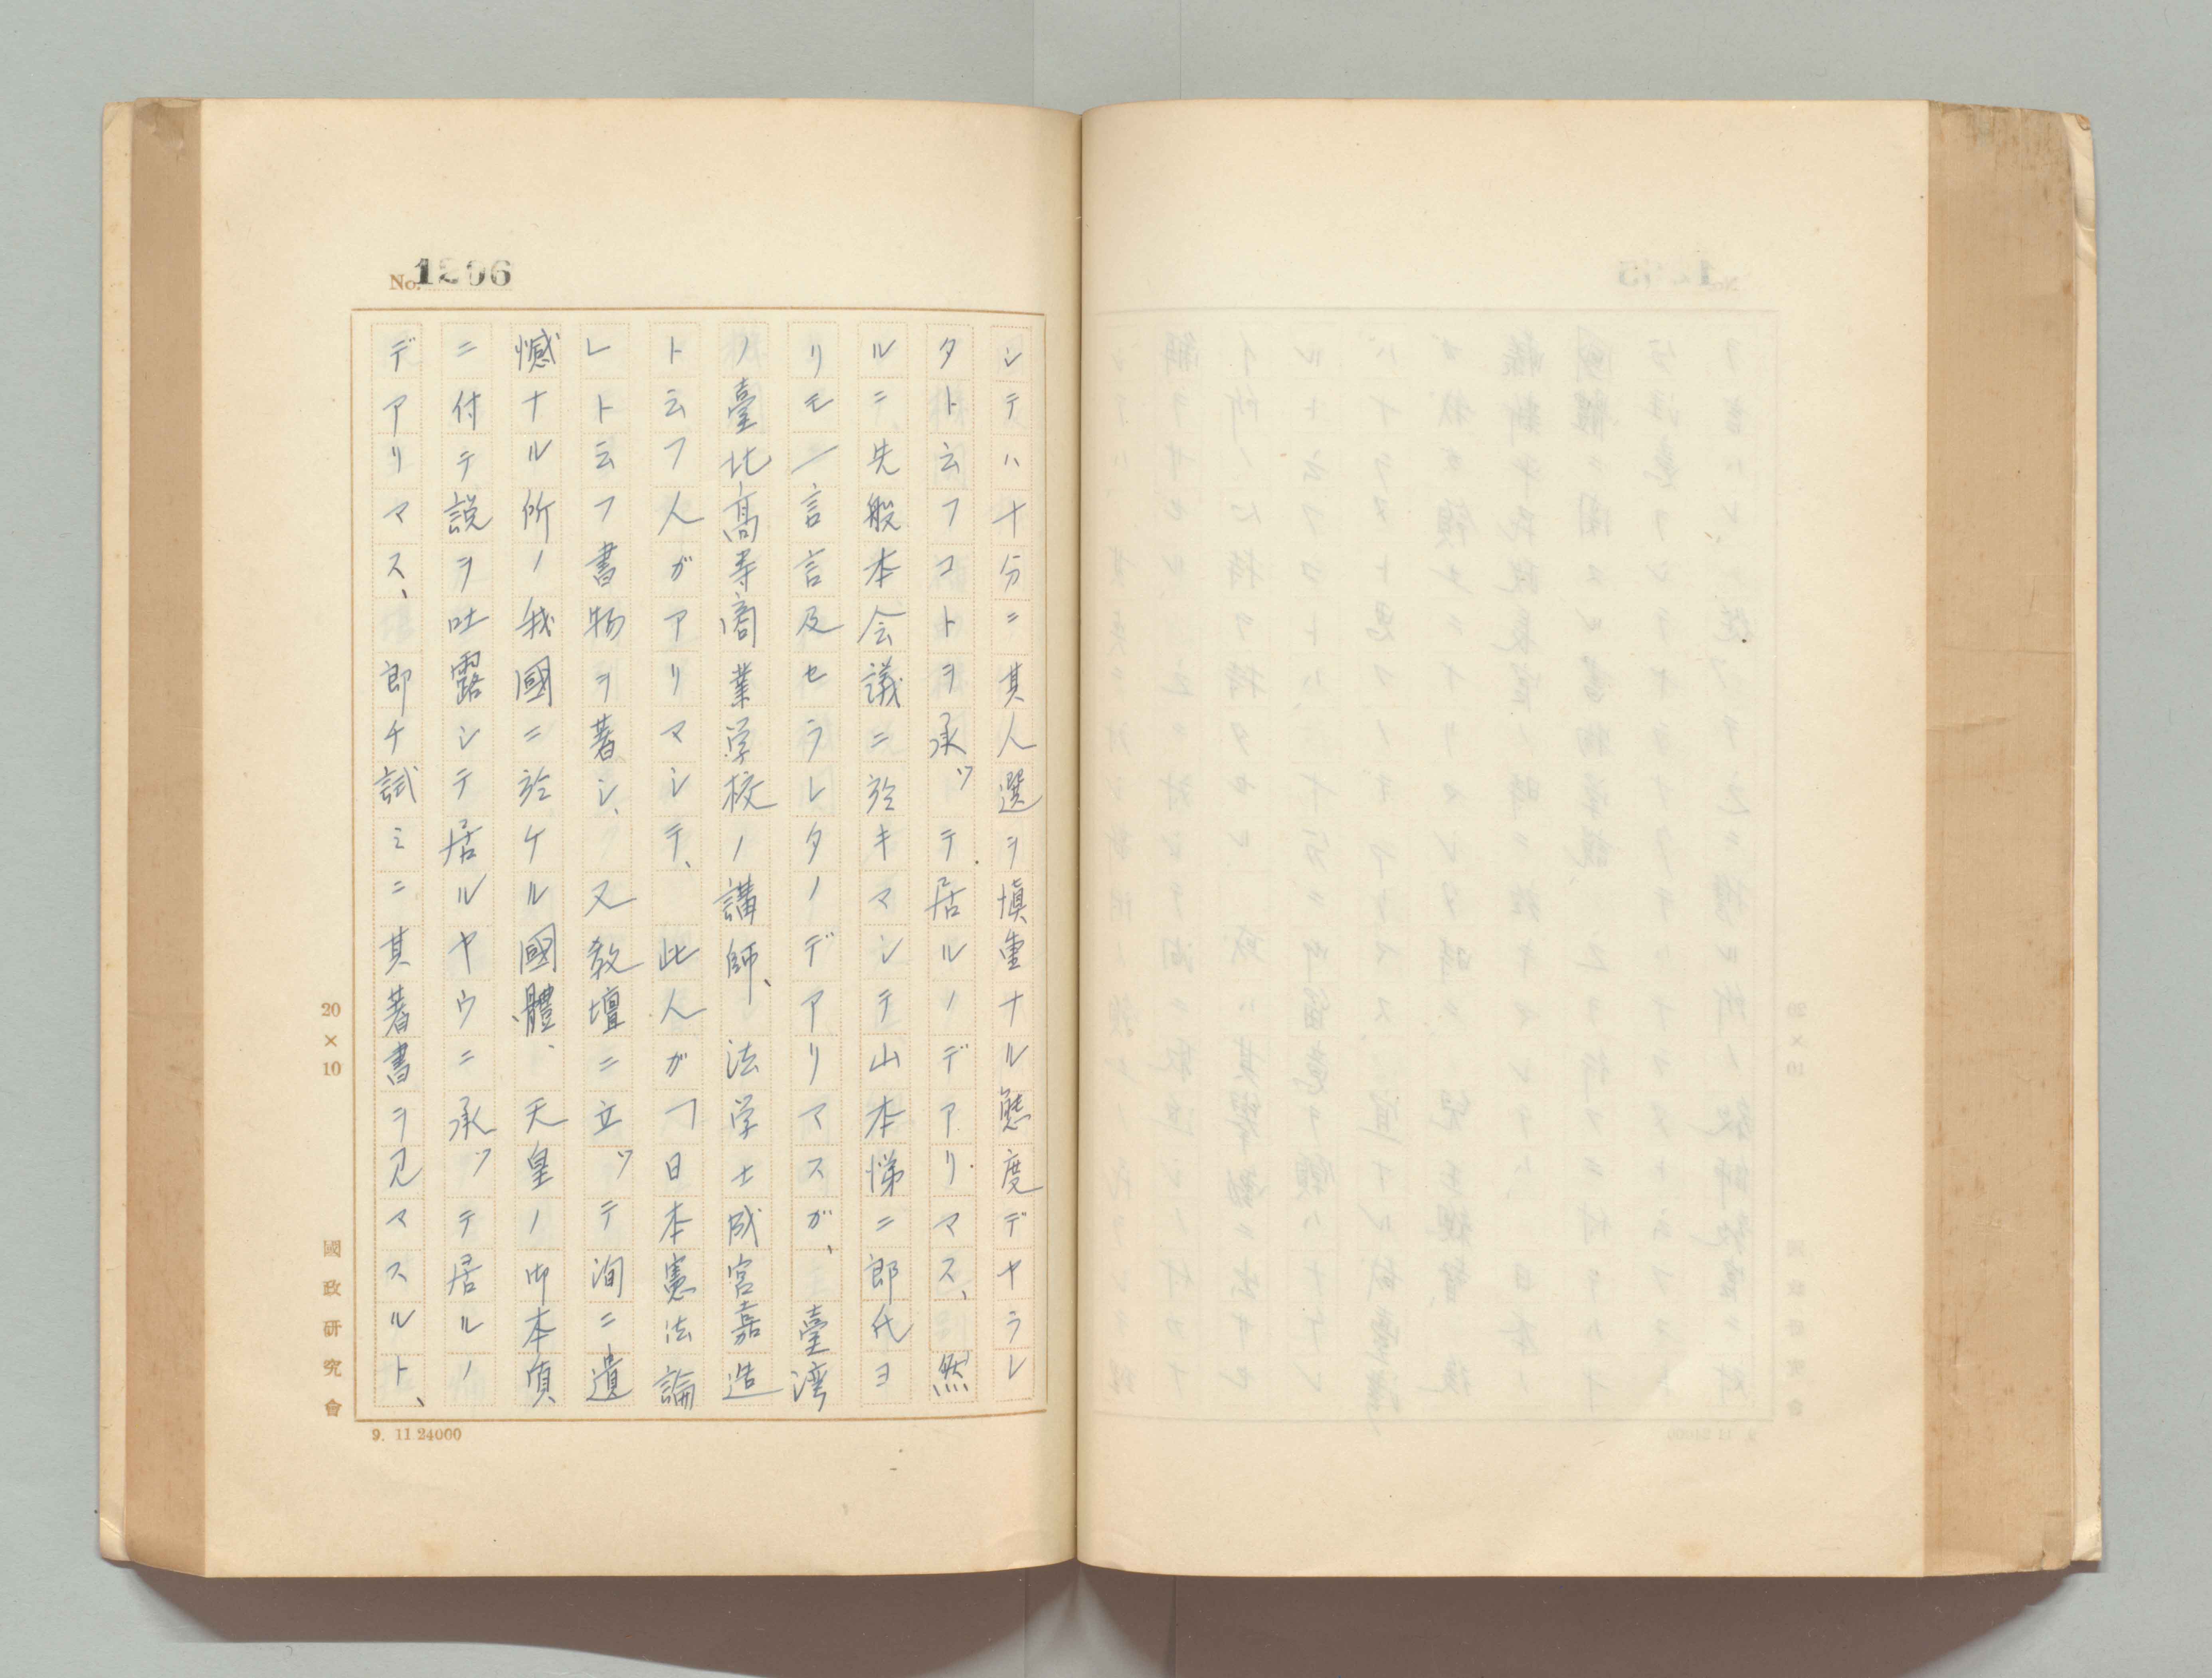 No. 1206
シテハ十分ニ其人選ヲ愼重ナル態度デヤラレ
タト云フコトヲ承ッテ居ルノデアリマス、然
ルニ先般本会議ニ於キマシテ山本悌二郎氏ヨ
リモ一言言及セラレタノデアリマスガ、臺湾
ノ臺北高等商業学校ノ講師、法学士成宮嘉造
ト云フ人ガアリマシテ、此人ガ「日本憲法論
レト云フ書物ヲ著シ、又教壇ニ立ッテ洵ニ遺
憾ナル所ノ我國ニ於ケル國體、天皇ノ御本質
ニ付テ説ヲ吐露シテ居ルヤウニ承ッテ居ルノ
デアリマス、即チ試ミニ其著書ヲ見マスルト、
20×10
國政研究會
9. 11 24000